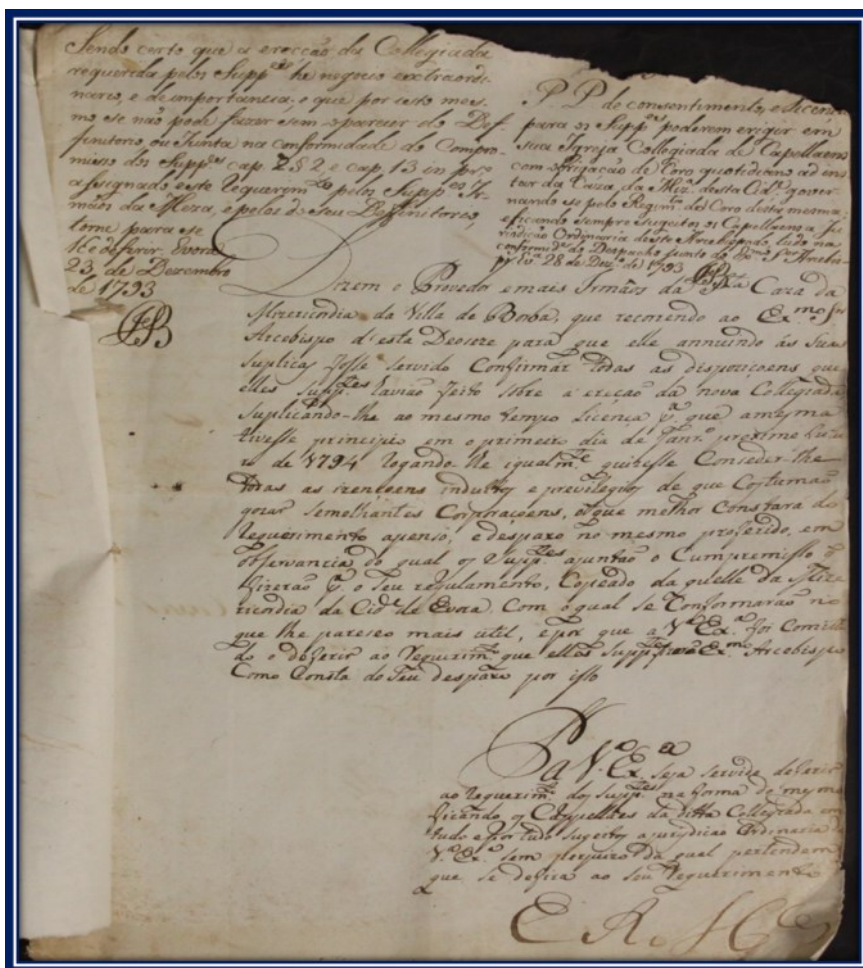 Sendo certo que a erecção da Collegiada
requerida pelos Supp.es he negocio extraordi-
nario, e de importancia, o que por isto mes-
mo se não pode fazer sem o parecer do Def-
finitorio, ou Junta na conformidade do Compro-
misso dos Supp.es cap. 2 § 2, e cap. 13 in pr.
assignado este Requerim.to pelos Supp.es Ir-
mãos da Meza, e pelos do seu Deffinitorio,
torne para se
lhe deferir. Evora
23 de Dezembro
de 1793
P. P. de consentimento, e licença
para os Supp.es poderem erigir em
sua Igreja Collegiada de Capellaens
com obrigação de Coro quotidiano à ens-
tar da Caza da Miz.a desta Cid.e gover-
nando-se pelo Regim.to do Coro desta mesma;
e ficando sempre sugeitos os Capellaens a Ju-
risdicão Ordinaria deste Arcebispado, tudo na
conformid.e do Despacho junto do Ex.mo S.or Arcebis-
po Ev.a 28 de Dez.o de 1793
Dizem o Provedor e mais Irmãos da S.ta Caza da
Mizericordia da Villa de Borba, que recorendo ao Ex.mo Sr
Arcebispo d'este Deoseze para que elle annuindo ás Suas
Suplicas fosse servido Confirmar todas as disposiçoens que
elles Supp.tes havião feito sobre a ereção da nova Collegiada,
Suplicando-lhe ao mesmo tempo Licença p.a que amesma
tivesse principio em o primeiro dia de Janr.o proximo futu
ro de 1794 Rogando-lhe igualm.te quizesse Conseder-lhe
todas as izençoens indultos e previlegios de que Costumão
gozar Semelhantes Corporaçoens, o que melhor Constará do
Requerimento apenso, e despaxo no mesmo proferido, em
observancia do qual os Supp.tes ajuntão o Cumpremisso q̃
fizerão p.a o Seu regulamento, Copeado da quelle da Mize
ricordia da Cid.e de Evora, Com o qual Se Conformarão no
que lhe pareseo mais util, e por que a V.a Ex.a foi Cometi
do o deferir ao Requerim.to que elles Supp.tes Ex.mo Arcebispo
Como Consta do Seu despaxo por isso
P a V.a Ex.a seja servido deferir
ao Requerim.to dos Supp.tes na forma do mesmo
ficando os Cappellães da ditta Collegiada em
tudo e por tudo sugeitos a jurydicao Ordinaria de
V.a Ex.a sem perjuizo da qual pertendem
que se defira ao seu Requerimento
E. R. M.ce